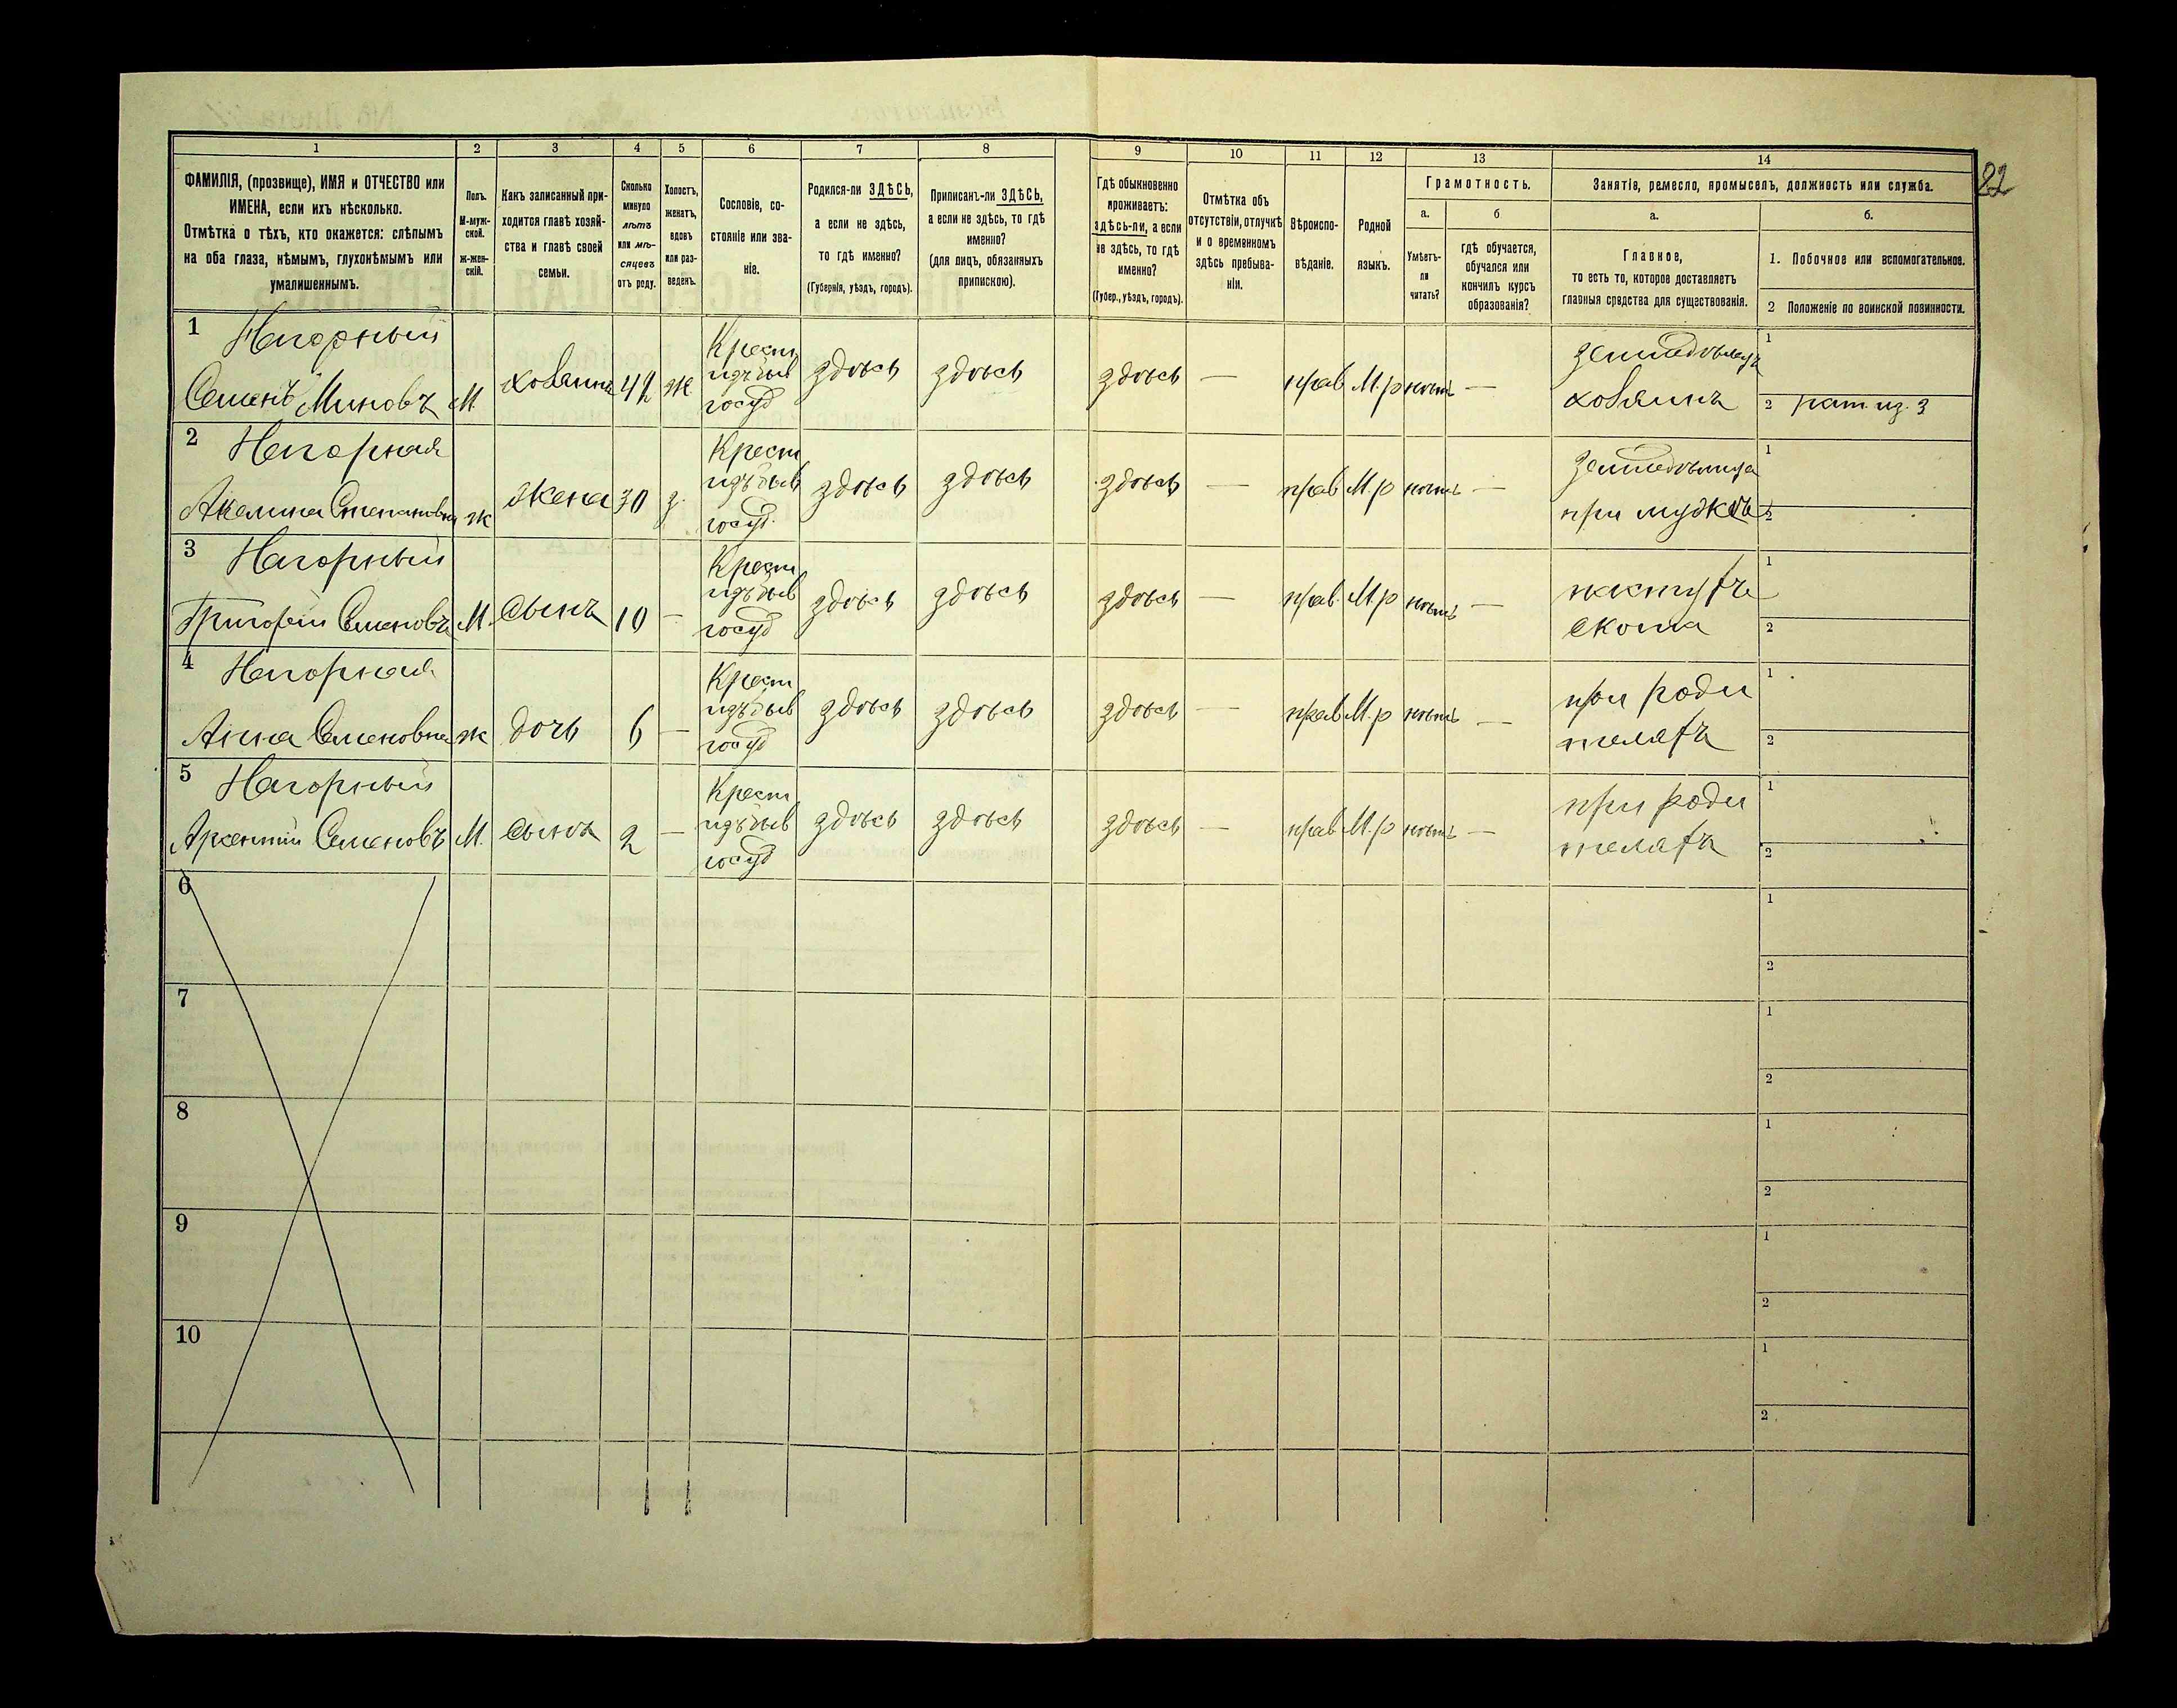 1 2 3 4 5 6 7 8 9 10 11 12 13 14
ФАМИЛІЯ, (прозвище), ИМЯ и ОТЧЕСТВО или
ИМЕНА, если ихъ нѣсколько.
Отмѣтка о тѣхъ, кто окажется: слѣпымъ
на оба глаза, нѣмымъ, глухонѣмымъ или
умалишеннымъ.
Полъ.
М-муж-
ской.
ж-жен-
скій.
Какъ записанный при-
ходится главѣ хозяй-
ства и главѣ своей
семьи.
Сколько
минуло
лѣтъ
или мѣ-
сяцевъ
отъ роду.
Холостъ,
женатъ,
вдовъ
или раз-
веденъ.
Сословіе, со-
стояніе или зва-
ніе.
Родился-ли ЗДѢСЬ,
а если не здѣсь,
то гдѣ именно?
(Губернія, уѣздъ, городъ).
Приписанъ-ли ЗДѢСЬ,
а если не здѣсь, то гдѣ
именно?
(для лицъ, обязанныхъ
припискою).
Гдѣ обыкновенно
проживаетъ:
здѣсь-ли, а если
не здѣсь, то гдѣ
именно?
(Губер., уѣздъ, городъ).
Отмѣтка объ
отсутствіи, отлучкѣ
и о временномъ
здѣсь пребыва-
ніи.
Вѣроиспо-
вѣданіе.
Родной
языкъ.
Грамотность.
а.
Умѣетъ-
ли
читать?
б
гдѣ обучается,
обучался или
кончилъ курсъ
образованія?
Занятіе, ремесло, промыселъ, должность или служба.
а.
Главное,
то есть то, которое доставляетъ
главныя средства для существованія.
б.
1. Побочное или вспомогательное.
2 Положеніе по воинской повинности.
22
1 Нагорный
Семенъ Миновъ
М.
хозяинъ
42
ж.
Крест
изъ быв
госуд
здѣсь
здѣсь
здѣсь
—
прав
М.р
нѣтъ
—
земледѣлецъ
хозяинъ
1
2 рат. из. 3
2 Нагорная
Акелина Степановна
ж
жена
30
з.
Крест
изъ быв
госуд.
здѣсь
здѣсь
здѣсь
—
прав
М.р
нѣтъ
—
земледѣлица
при мужѣ
1
2
3 Нагорный
Григорій Семеновъ
М.
сынъ
10
—
Крест
изъ быв
госуд
здѣсь
здѣсь
здѣсь
—
прав.
М.р
нѣтъ
—
пастухъ
скота
1
2
4 Нагорная
Анна Семеновна
ж
дочь
6
—
Крест
изъ быв
госуд
здѣсь
здѣсь
здѣсь
—
прав
М.р
нѣтъ
—
при роди
теляхъ
1
2
5 Нагорный
Арсентій Семеновъ
М.
сынъ
2
—
Крест
изъ быв
госуд
здѣсь
здѣсь
здѣсь
—
прав
М.р
нѣтъ
—
при роди
теляхъ
1
2
6
1
2
7
1
2
8
1
2
9
1
2
10
1
2